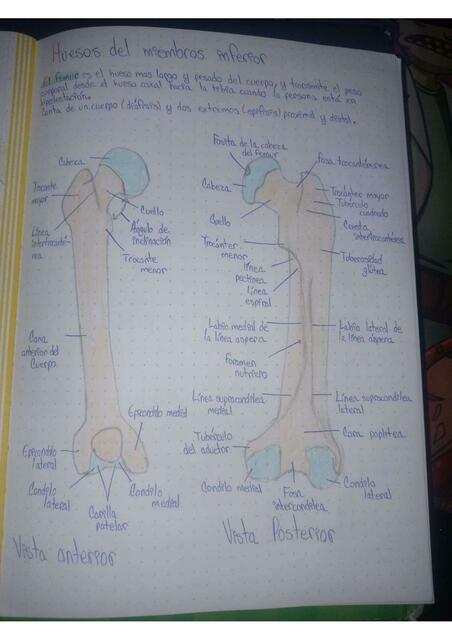 Huesos del miembros inferior
El femur es el hueso mas largo y pesado del cuerpo, y transmite el peso
corporal desde el hueso coxal hacia la tibia cuando la persona está en
bipedestación.
Consta de un cuerpo (diáfisis) y dos extremos (epífisis) proximal y distal.
Cabeza
Trocante
mayor
Línea
intertrocanté
rea
Cuello
Ángulo de
inclinación
Trocante
menor
Cara
anterior del
Cuerpo
Epicondilo medial
Epicondilo
lateral
Condilo
lateral
Carilla
patelar
Condilo
medial
Vista anterior
Fosita de la cabeza
del femur
Fosa trocantérea
Cabeza
Trocánter mayor
Tubérculo
cuadrado
Cuello
Cresta
intertrocantérea
Trocánter
menor
Tuberosidad
glútea
línea
pectínea
línea
espiral
Labio medial de
la línea aspera
Labio lateral de
la línea aspera
Foramen
nutricio
Línea supracondílea
medial
Línea supracondílea
lateral
Tubérculo
del aductor
Cara poplítea
Condilo medial
Fosa
intercondílea
Condilo
lateral
Vista Posterior